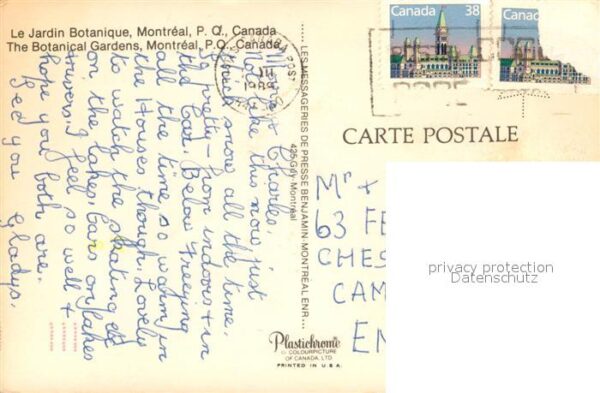 Le Jardin Botanique, Montréal, P. Q., Canada
The Botanical Gardens, Montréal, P.Q., Canada
Charles,
not like this now just
much snow all the time.
pretty – from indoors & in
the Car. Below Freezing
all the time so warm in
the Houses though. Lovely
to watch the skating etc
on the lakes. Cars on lakes
& rivers. I feel so well &
hope you both are.
God you Gladys.
LES MESSAGERIES DE PRESSE BENJAMIN MONTRÉAL ENR...
425 Guy Montréal
Plastichrome
COLOURPICTURE
OF CANADA, LTD
PRINTED IN U.S.A.
Canada 38
Canada
1989
CARTE POSTALE
Mr +
63 FE
CHES
CAM
EN
privacy protection
Datenschutz